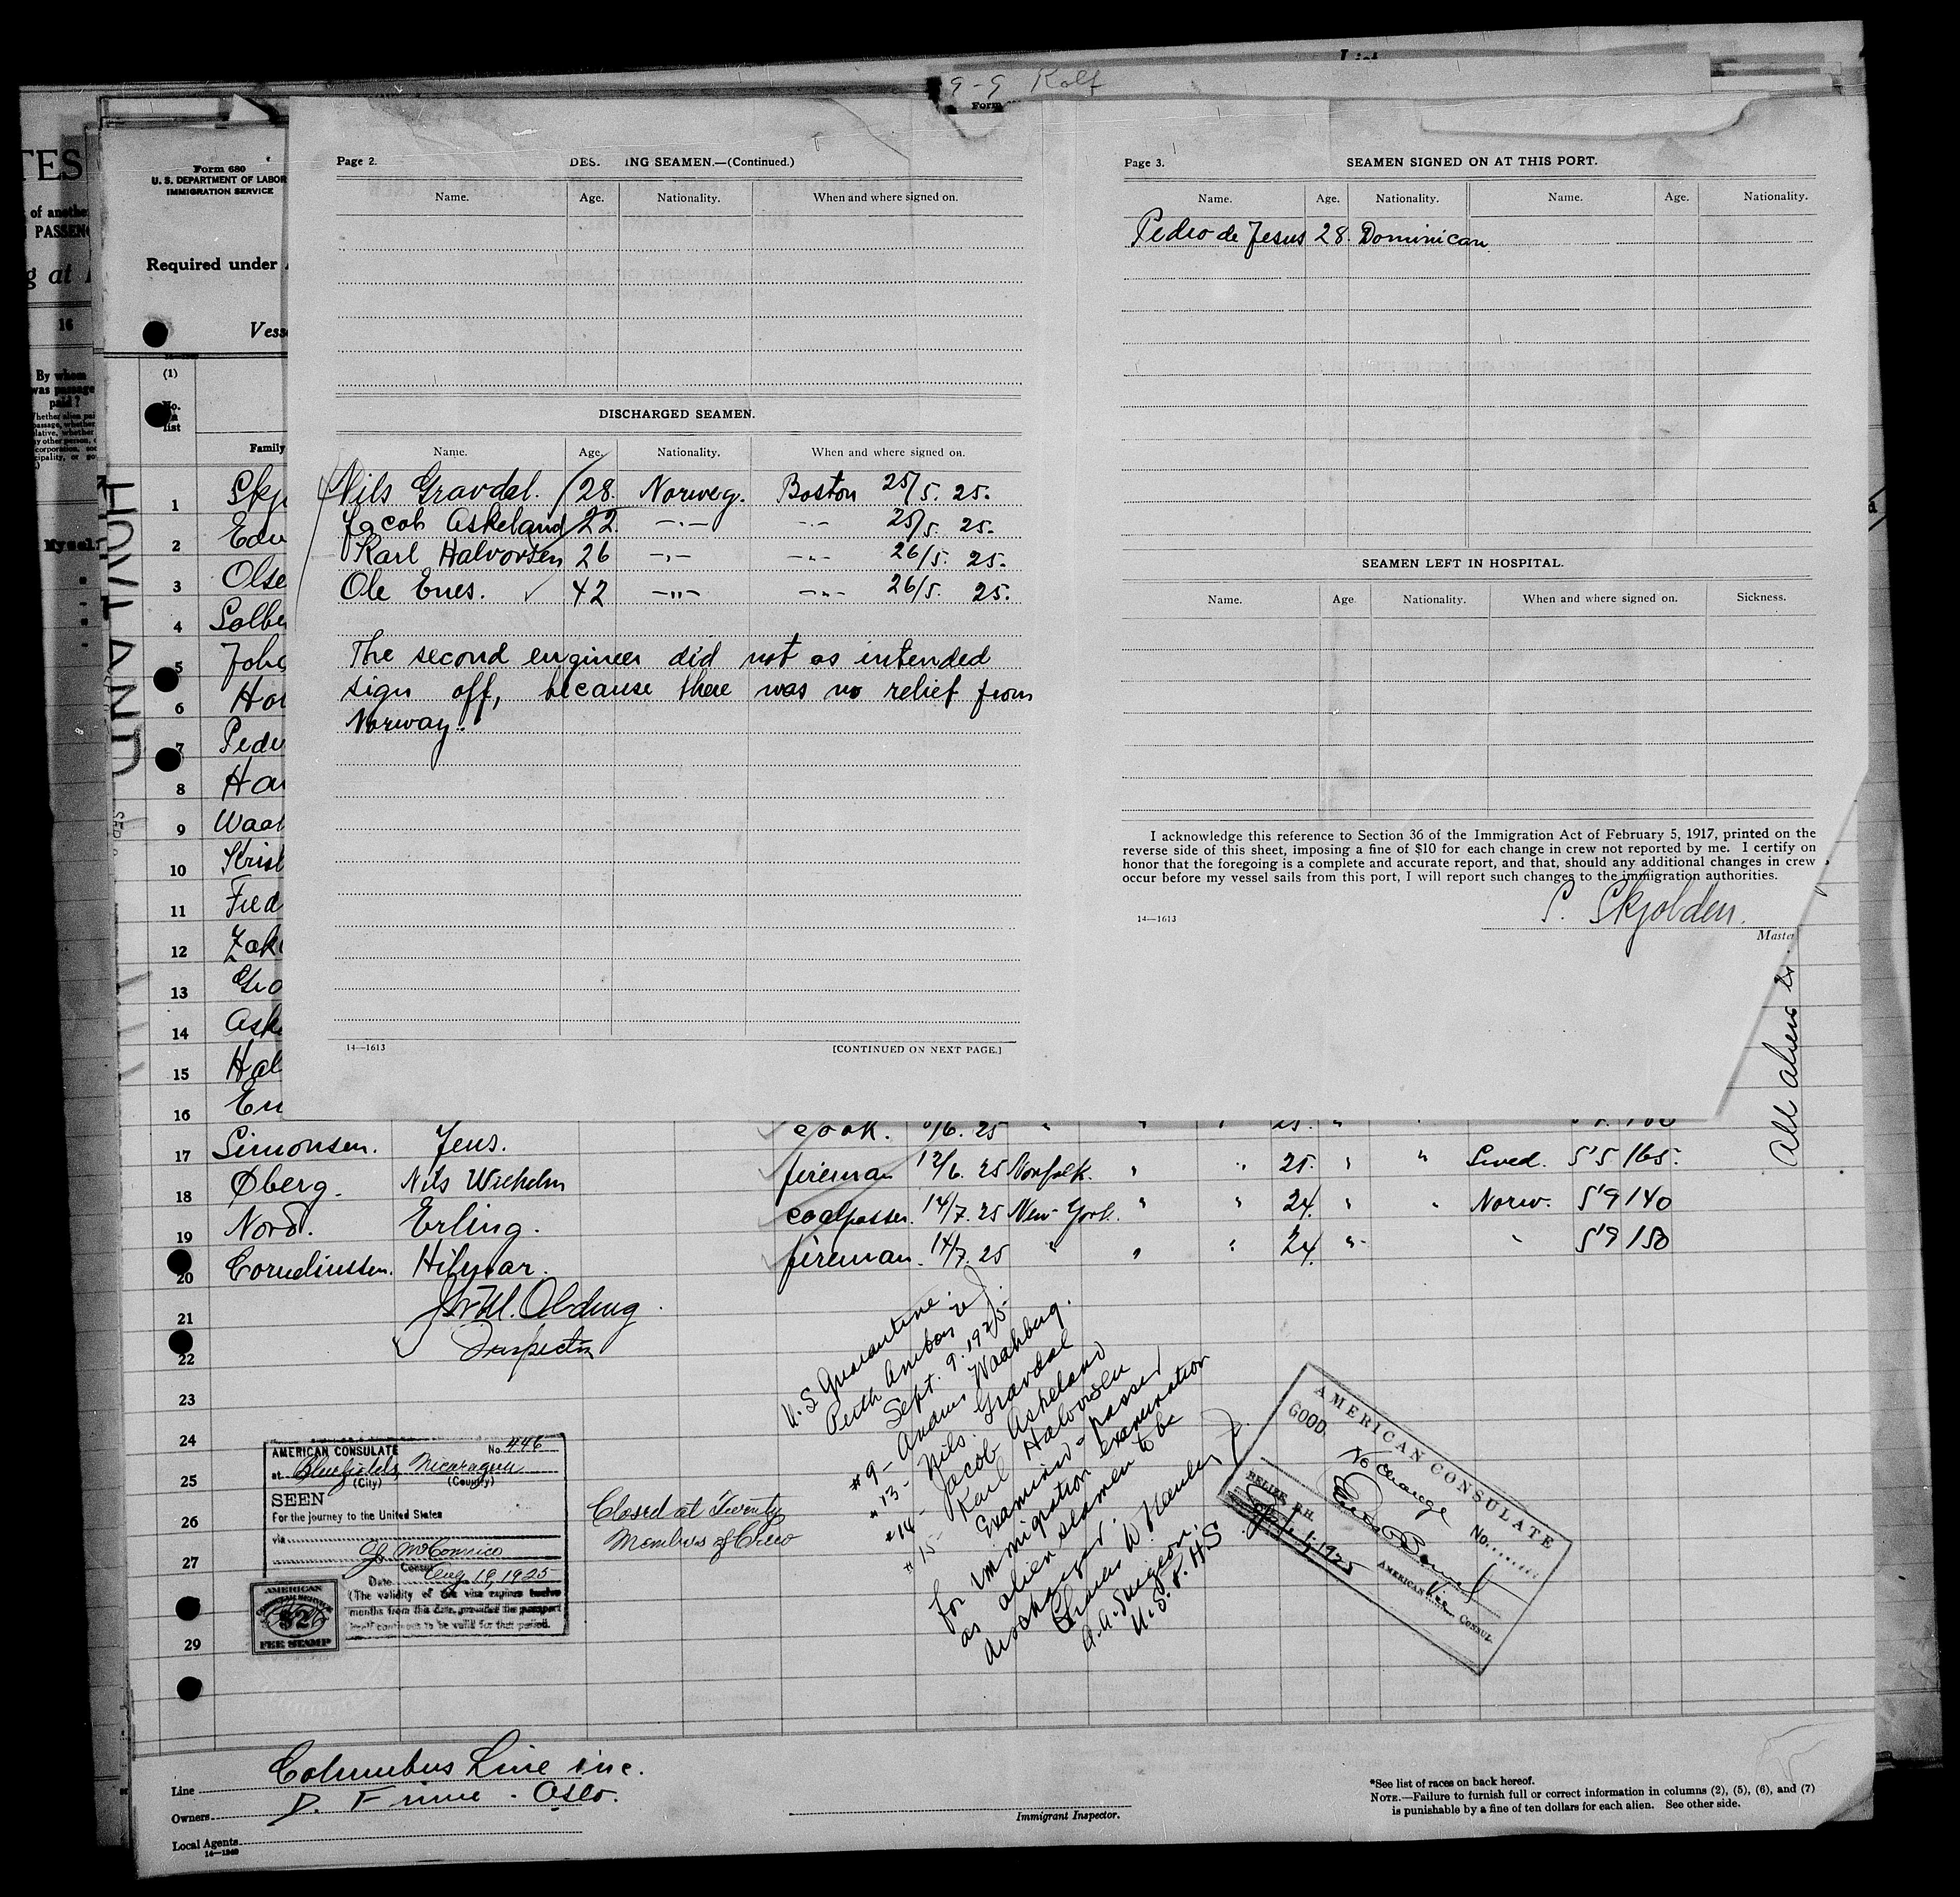 9-9 Rolf
Form
List
TES
of another
PASSENG
g at
16
By whom
was passage
paid?
Myself
Form 680
U. S. DEPARTMENT OF LABOR
IMMIGRATION SERVICE
Required under
Vess
(1)
No.
list
Family
HOVLAND
Page 2.
DES. ING SEAMEN.—(Continued.)
Name. Age. Nationality. When and where signed on.
DISCHARGED SEAMEN.
Name. Age. Nationality. When and where signed on.
Nils Gravdal. 28. Norweg. Boston 25/5. 25.
Jacob Askeland 22 —·— —·— 25/5. 25.
Karl Halvorsen 26 —·— —·— 26/5. 25.
Ole Enes. ✓ 42 —"— —"— 26/5. 25.
The second engineer did not as intended
sign off, because there was no relief from
Norway.
14—1613 [CONTINUED ON NEXT PAGE.]
Page 3.
SEAMEN SIGNED ON AT THIS PORT.
Name. Age. Nationality. Name. Age. Nationality.
Pedro de Jesus 28. Dominican
SEAMEN LEFT IN HOSPITAL.
Name. Age. Nationality. When and where signed on. Sickness.
I acknowledge this reference to Section 36 of the Immigration Act of February 5, 1917, printed on the
reverse side of this sheet, imposing a fine of $10 for each change in crew not reported by me. I certify on
honor that the foregoing is a complete and accurate report, and that, should any additional changes in crew
occur before my vessel sails from this port, I will report such changes to the immigration authorities.
S. Skjolden.
14—1613
Master
All aliens
1 Skjo
2 Edv
3 Olse
4 Solbe
5 Joha
6 Hou
7 Pede
8 Han
9 Waah
10 Krist
11 Fred
12 Zak
13 Gra
14 Aske
15 Hal
16 En
17 Simonsen. Jens. cook. 25
18 Øberg. Nils Wilhelm fireman 12/6. 25 Norfolk. " " 25. " " Swed. 5'5 165.
19 Nord. Erling. coalpasser. 14/7. 25 New York. " " 24. " " Norw. 5'9 140
20 Corneliussen. Hilmar. fireman. 14/7. 25 " " " 24. " " 5'9 150
21
22
Inspector
23
24
25
26
27
29
U.S Quarantine.
Perth Amboy NJ.
Sept. 9. 1925.
#9- Anders Waahberg.
" 13- Nils. Gravdal
#14- Jacob Askeland
#15- Karl Halvorsen
Examined - passed
for immigration examination
as alien seamen to be
discharged.
Charles W.
A.A. Surgeon.
U.S.P.H.S
AMERICAN CONSULATE No. 446
at Bluefields, Nicaragua
(City) (Country)
SEEN
For the journey to the United States
via
McConnico
Consul
Date Aug 19, 1925
(The validity of this visa expires twelve
months from this date, provided the passport
itself continues to be valid for that period.
AMERICAN
$2
FEE STAMP
Closed at Twenty
Members of Crew
AMERICAN CONSULATE
GOOD.
No Change
No.......
BELIZE, B.H.
1925
AMERICAN Vice CONSUL.
Line Columbus Line inc.
Owners D. Finne - Oslo.
Local Agents
14—1240
Immigrant Inspector.
*See list of races on back hereof.
NOTE.—Failure to furnish full or correct information in columns (2), (5), (6), and (7)
is punishable by a fine of ten dollars for each alien. See other side.